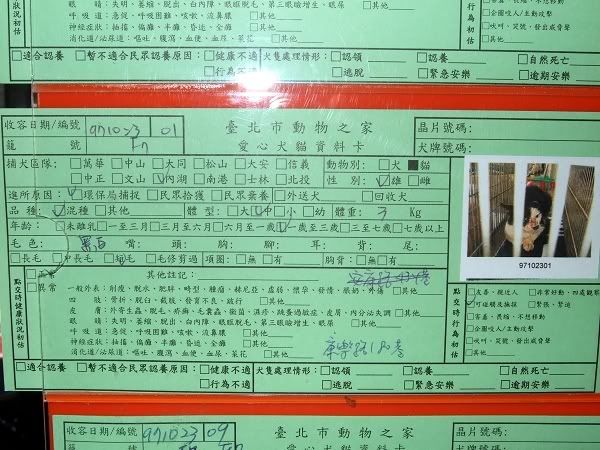 眼 睛：失明、萎縮、脫出、白內障、眼瞼脫毛、第三眼瞼增生、眼屎 □其他
呼 吸 道：急促、呼吸困難、咳嗽、流鼻膿 □其他
神經症狀：抽搐、偏癱、半癱、昏迷、全癱 □其他
消化道/泌尿道：嘔吐、腹瀉、血便、血尿、菜花 □其他
□企圖咬人/主動攻擊
□吠叫、哭號、發出威脅聲
□其他
□適合認養 □暫不適合民眾認養原因：□健康不適 犬隻處理情形：□認領 □認養 □自然死亡
□行為不適 □逃脫 □緊急安樂 □逾期安樂
收容日期/編號 971023 01
臺北市動物之家
晶片號碼：
籠 號
愛心犬貓資料卡
犬牌號碼：
捕犬區隊：□萬華 □中山 □大同 □松山 □大安 □信義 動物別：□犬 ■貓
□中正 □文山 ☑內湖 □南港 □士林 □北投 性 別：☑雄 □雌
進所原因：☑環保局捕捉 □民眾拾獲 □民眾棄養 □外送犬 □回收犬
品 種：☑混種 □其他 體 型：□大 ☑中 □小 □幼 體重：3 Kg
年齡：□未離乳 □一至三月 □三至六月 □六月至一歲 ☑一至三歲 □三至七歲 □七歲以上
毛 色： 黑白 嘴： 頭： 胸： 腳： 耳： 背： 尾：
□長毛 □中長毛 ☑短毛 □毛修剪過 項圈：□無 □有 胸背：□無 □有
97102301
點交時健康狀況初估
□正常
□異常
其他註記：
一般外表：削瘦、脫水、肥胖、畸型、腫瘤、赫尼亞、虛弱、懷孕、發情、眼奶、外傷 □其他
四 肢：骨折、脫臼、截肢、發育不良、跛行 □其他
皮 膚：外寄生蟲、脫毛、疥癬、毛囊蟲、黴菌、濕疹、跳蚤過敏、皮屑、內分泌失調 □其他
眼 睛：失明、萎縮、脫出、白內障、眼瞼脫毛、第三眼瞼增生、眼屎 □其他
呼 吸 道：急促、呼吸困難、咳嗽、流鼻膿 □其他
神經症狀：抽搐、偏癱、半癱、昏迷、全癱 □其他
消化道/泌尿道：嘔吐、腹瀉、血便、血尿、菜花 □其他
點交時行為初估
□友善、親近人 □非常好動、四處觀察
☑可碰觸及撫摸 □緊張、緊迫
□害羞、畏縮、不想移動
□企圖咬人/主動攻擊
□吠叫、哭號、發出威脅聲
□其他
□適合認養 □暫不適合民眾認養原因：□健康不適 犬隻處理情形：□認領 □認養 □自然死亡
□行為不適 □逃脫 □緊急安樂 □逾期安樂
收容日期/編號 971023 09
臺北市動物之家
晶片號碼：
籠 號
愛心犬貓資料卡
犬牌號碼：